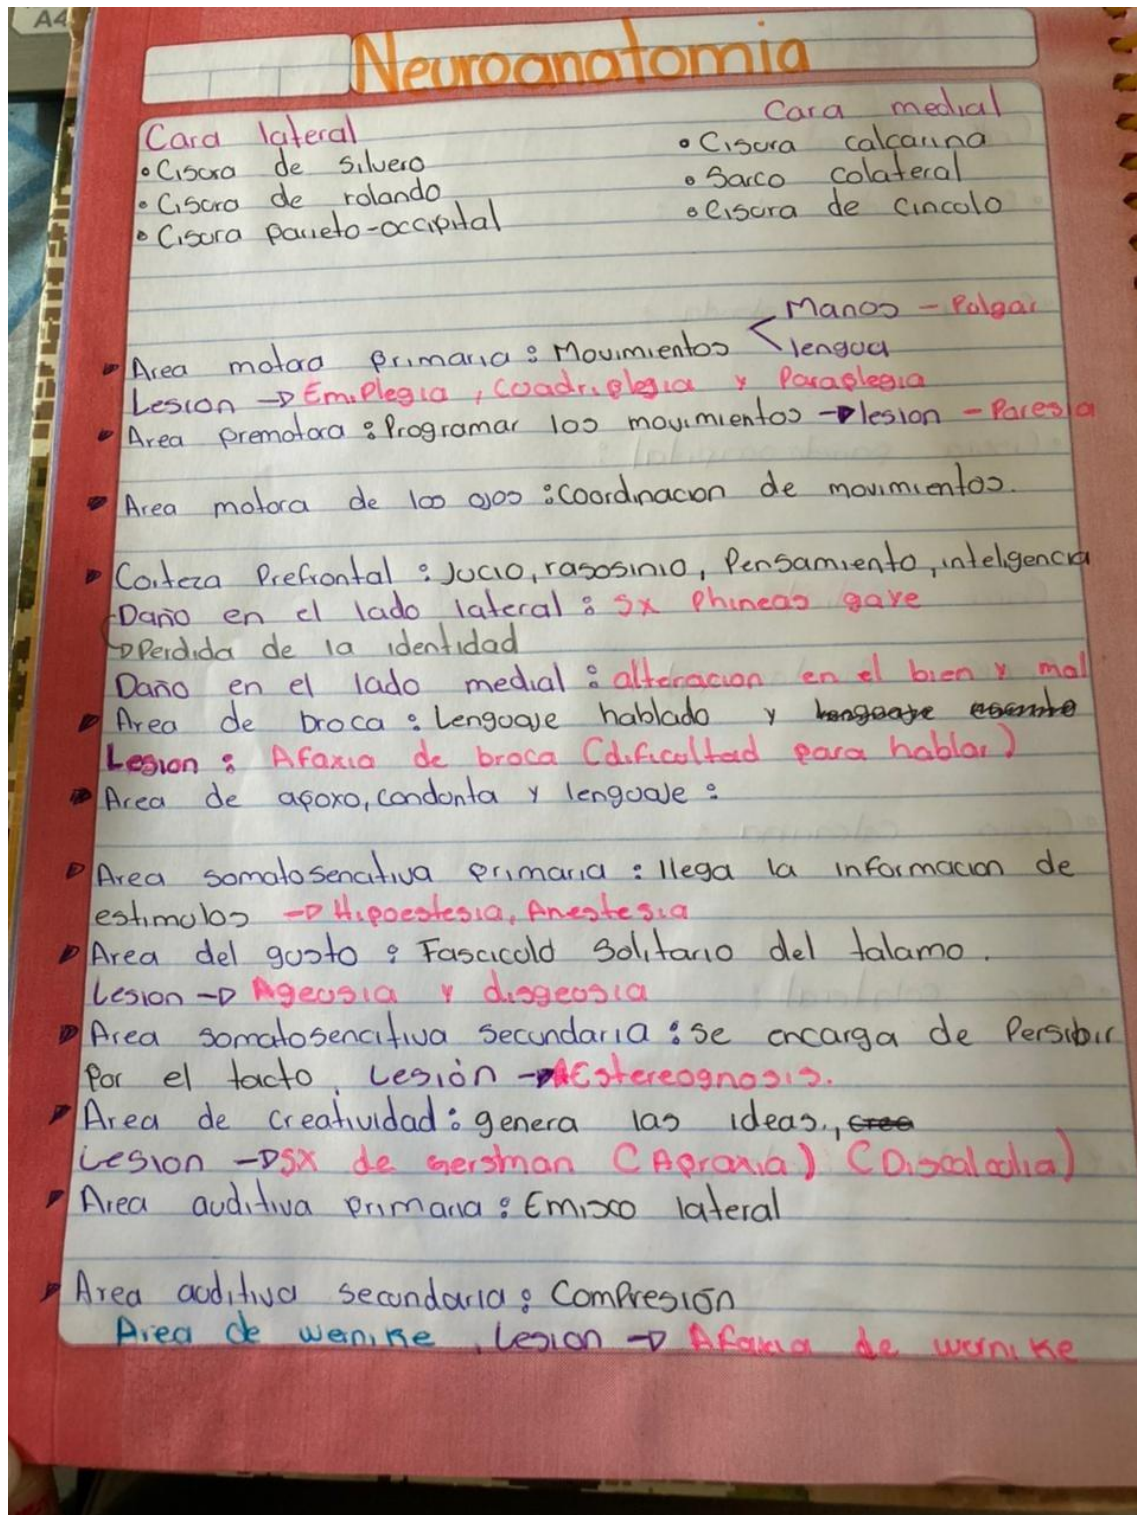 A4
Neuroanatomia
Cara lateral
Cara medial
• Cisura de silvero
• Cisura calcarina
• Cisura de rolando
• Sarco colateral
• Cisura parieto-occipital
• Cisura de cinculo
Manos - Pulgar
Area motora primaria : Movimientos < lengua
Lesion → Emiplegia, Cuadriplegia y Paraplegia
Area premotora : Programar los movimientos → lesion - Paresia
Area motora de los ojos : Coordinacion de movimientos.
Corteza Prefrontal : Jucio, rasosinio, Pensamiento, inteligencia
Daño en el lado lateral : Sx Phineas gaye
→ Perdida de la identidad
Daño en el lado medial : alteracion en el bien y mal
Area de broca : Lenguaje hablado y lenguaje escrito
Lesion : Afaxia de broca (dificultad para hablar)
Area de apoxo, condonta y lenguaje :
Area somatosencitiva primaria : llega la informacion de
estimulos → Hipoestesia, Anestesia
Area del gusto : Fasciculo Solitario del talamo.
Lesion → Ageusia y disgeusia
Area somatosencitiva secundaria : se encarga de Persibir
Por el tacto. Lesión → AEstereognosis.
Area de creatividad : genera las ideas., crea
Lesion → SX de gersman (Apraxia) (Discalculia)
Area auditiva primaria : Emisco lateral
Area auditiva secundaria : Compresión
Area de wernike, Lesion → Afaxia de wernike